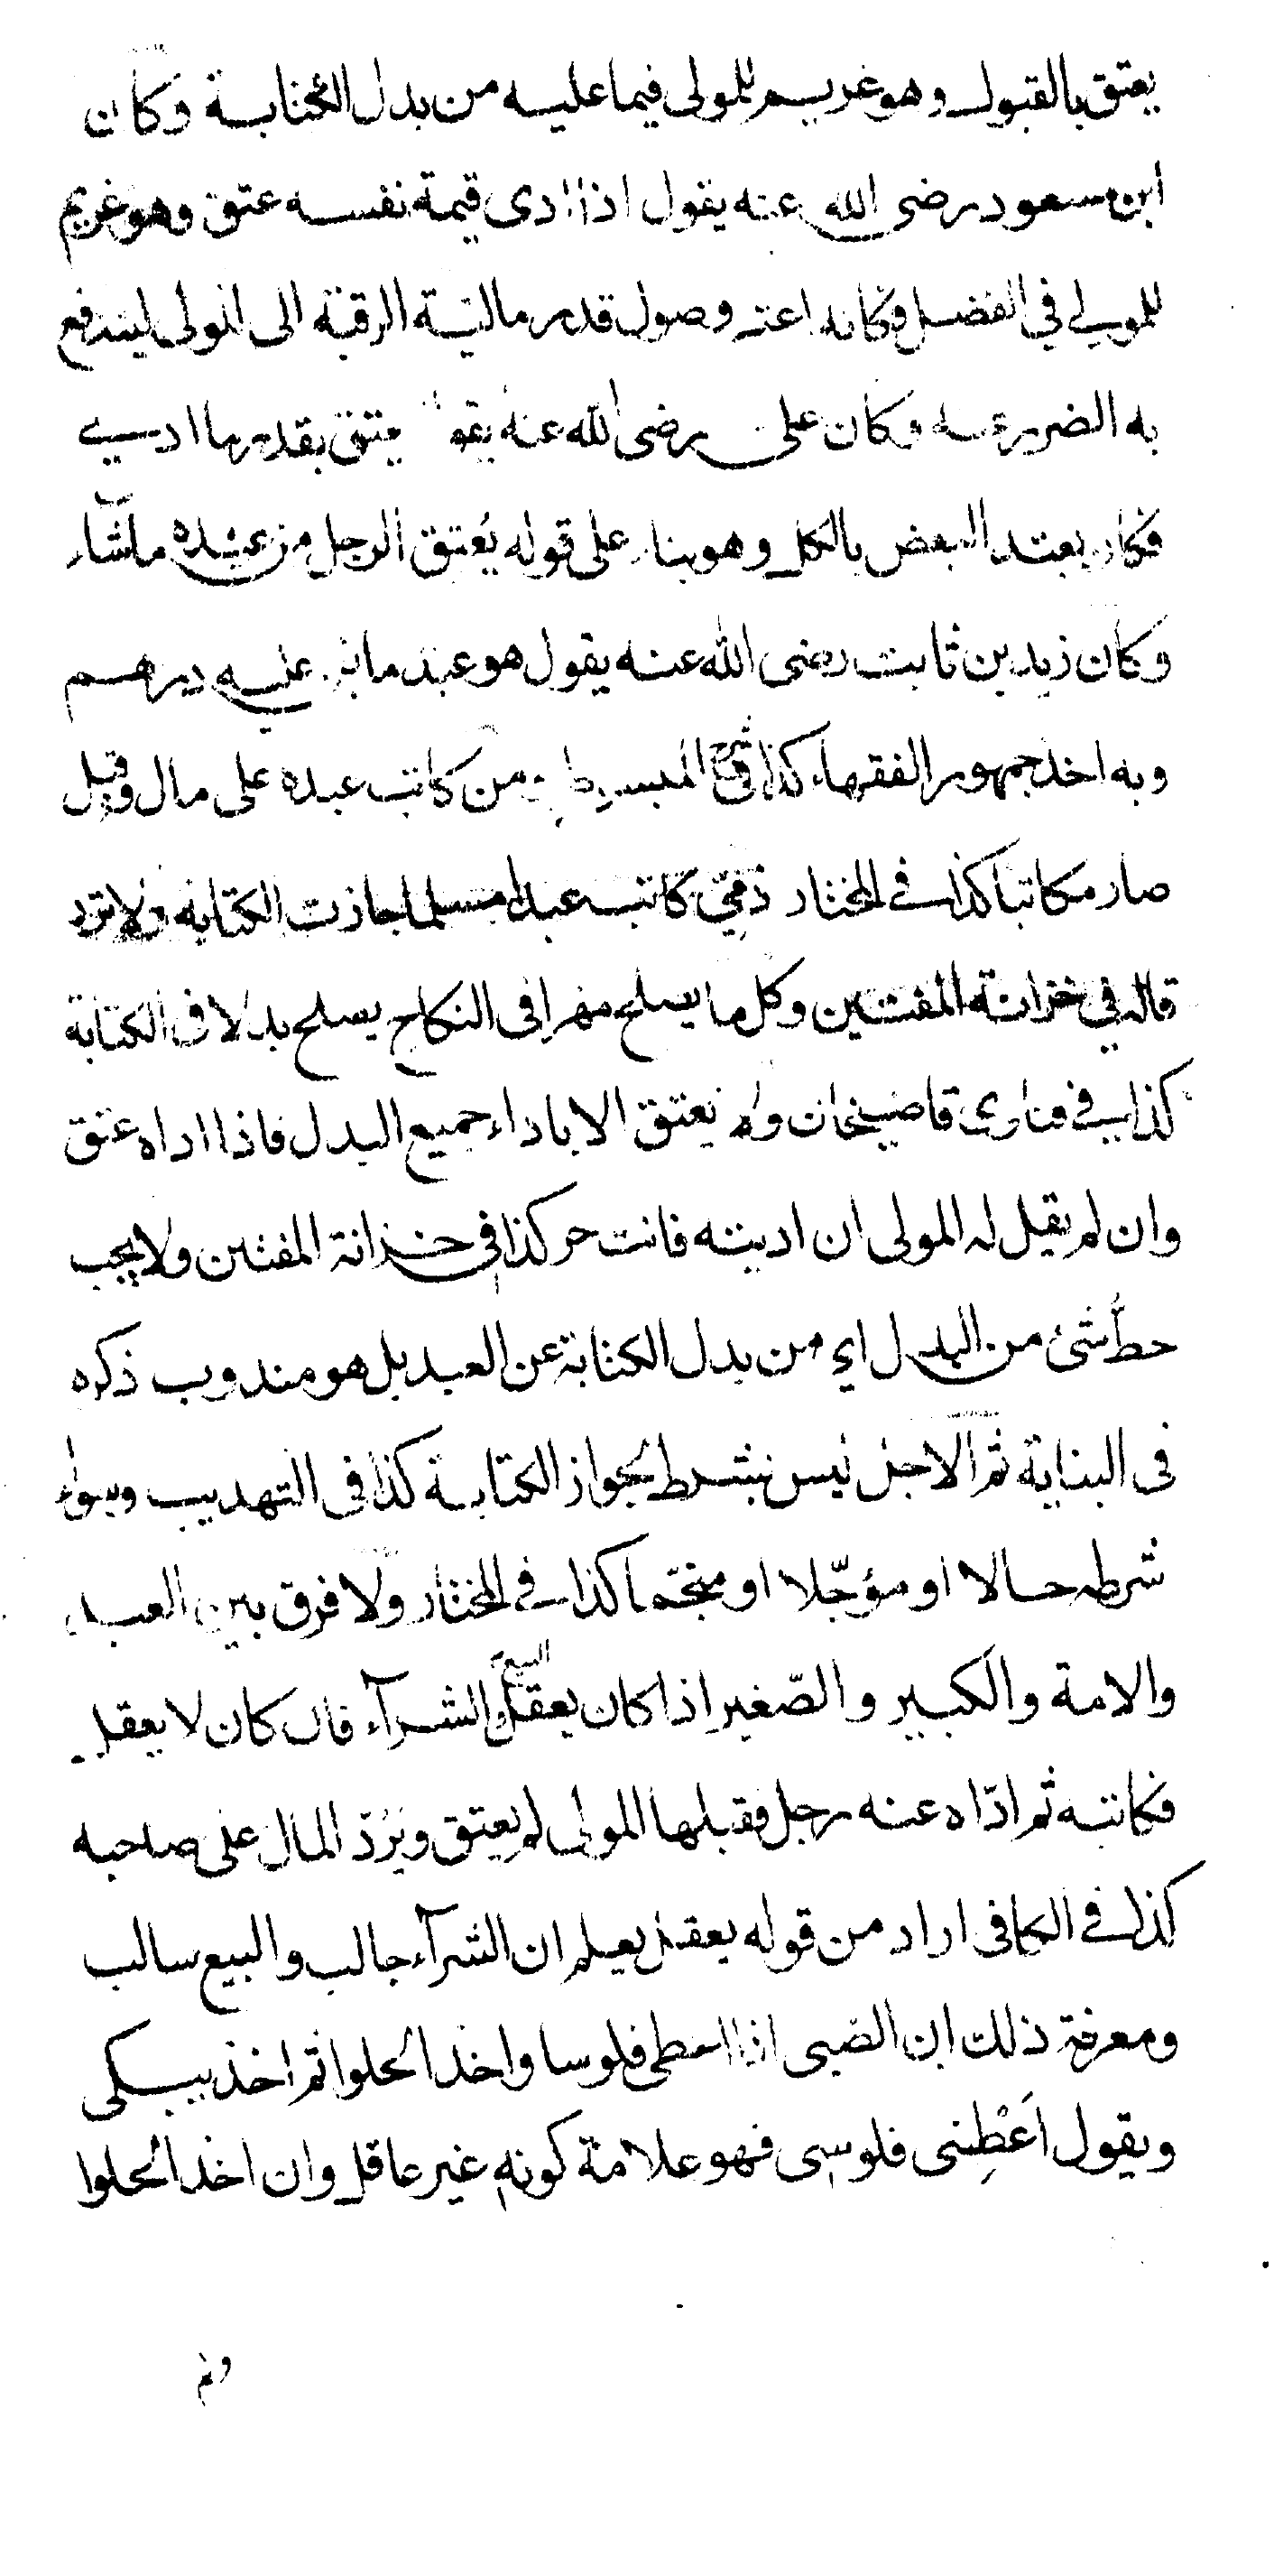 يعتق بالقبول وهو غريم للمولى فيما عليه من بدل الكتابة وكان
ابن مسعود رضى الله عنه يقول اذا ادى قيمة نفسه عتق وهو غريم
للمولى في الفضل فكانه اعتبر وصول قدر مالية الرقبة الى المولى ليندفع
به الضرر عنه وكان على رضى الله عنه يقول يعتق بقدر ما ادى
فكان يعتبر البعض بالكل وهو بناء على قوله يُعتق الرجل من عبيده ما شآء
وكان زيد بن ثابت رضى الله عنه يقول هو عبد ما بقى عليه درهم
وبه اخذ جمهور الفقهاء كذا في شرح المبسوط من كاتب عبده على مال وقبل
صار مكاتبا كذا في المختار ذمّي كاتب عبدا مسلما جازت الكتابة ولا ترد
قاله في خزانة المفتين وكل ما يصلح مهرا فى النكاح يصلح بدلا فى الكتابة
كذا في فتاوى قاضيخان ولا يعتق الا باداء جميع البدل فاذا اداه عتق
وان لم يقل له المولى ان اديته فانت حر كذا فى خزانة المفتين ولا يجب
حطّ شئ من البدل اي من بدل الكتابة عن العبد بل هو مندوب ذكره
فى البناية ثم الاجل ليس بشرط لجواز الكتابة كذا فى التهذيب وسواء
شرطه حالا او مؤجّلا او منجّما كذا في المختار ولا فرق بين العبد
والامة والكبير والصّغير اذا كان يعقل البيع والشرآء فان كان لا يعقل
فكاتبه ثم ادّاه عنه رجل فقبلها المولى لم يعتق ويَرُدّ المال على صاحبه
كذا في الكافى اراد من قوله يعقل يعلم ان الشرآء جالب والبيع سالب
ومعرفة ذلك ان الصّبى اذا اعطى فلوسا واخذ الحلوا ثم اخذ يبكى
ويقول اَعْطِنى فلوسى فهو علامة كونه غير عاقل وان اخذ الحلوا
ولم